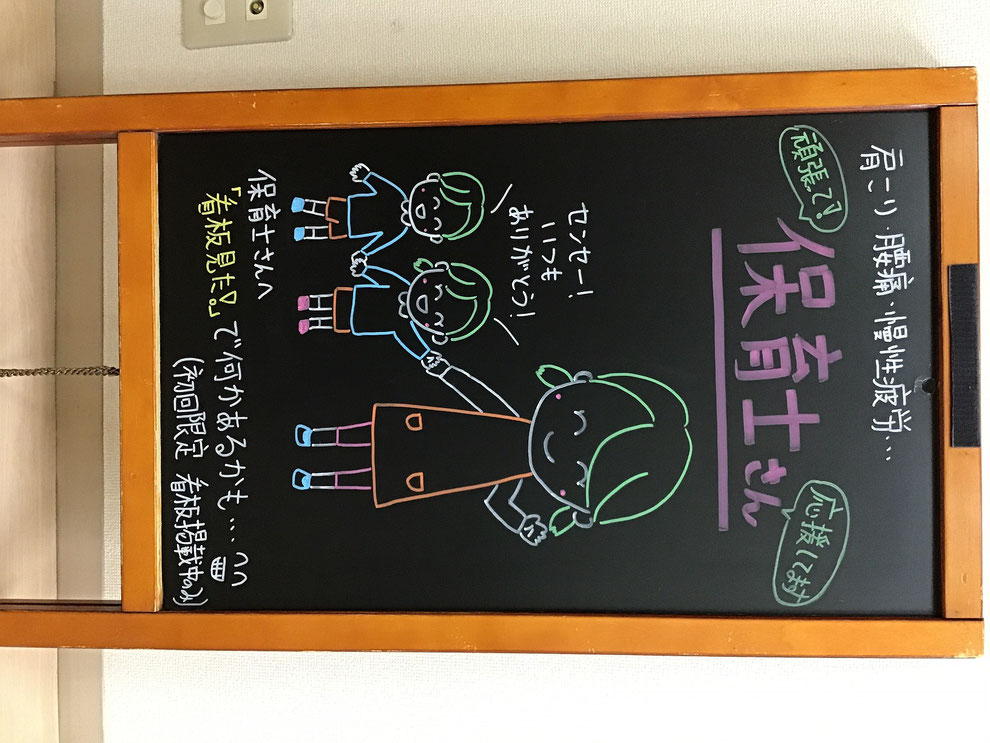 肩こり・腰痛・慢性疲労…
頑張って!
保育士さん
応援してます
センセー!
いつも
ありがとう!
保育士さんへ
「看板見た。」で何かあるかも…
(初回限定 看板掲載中のみ)